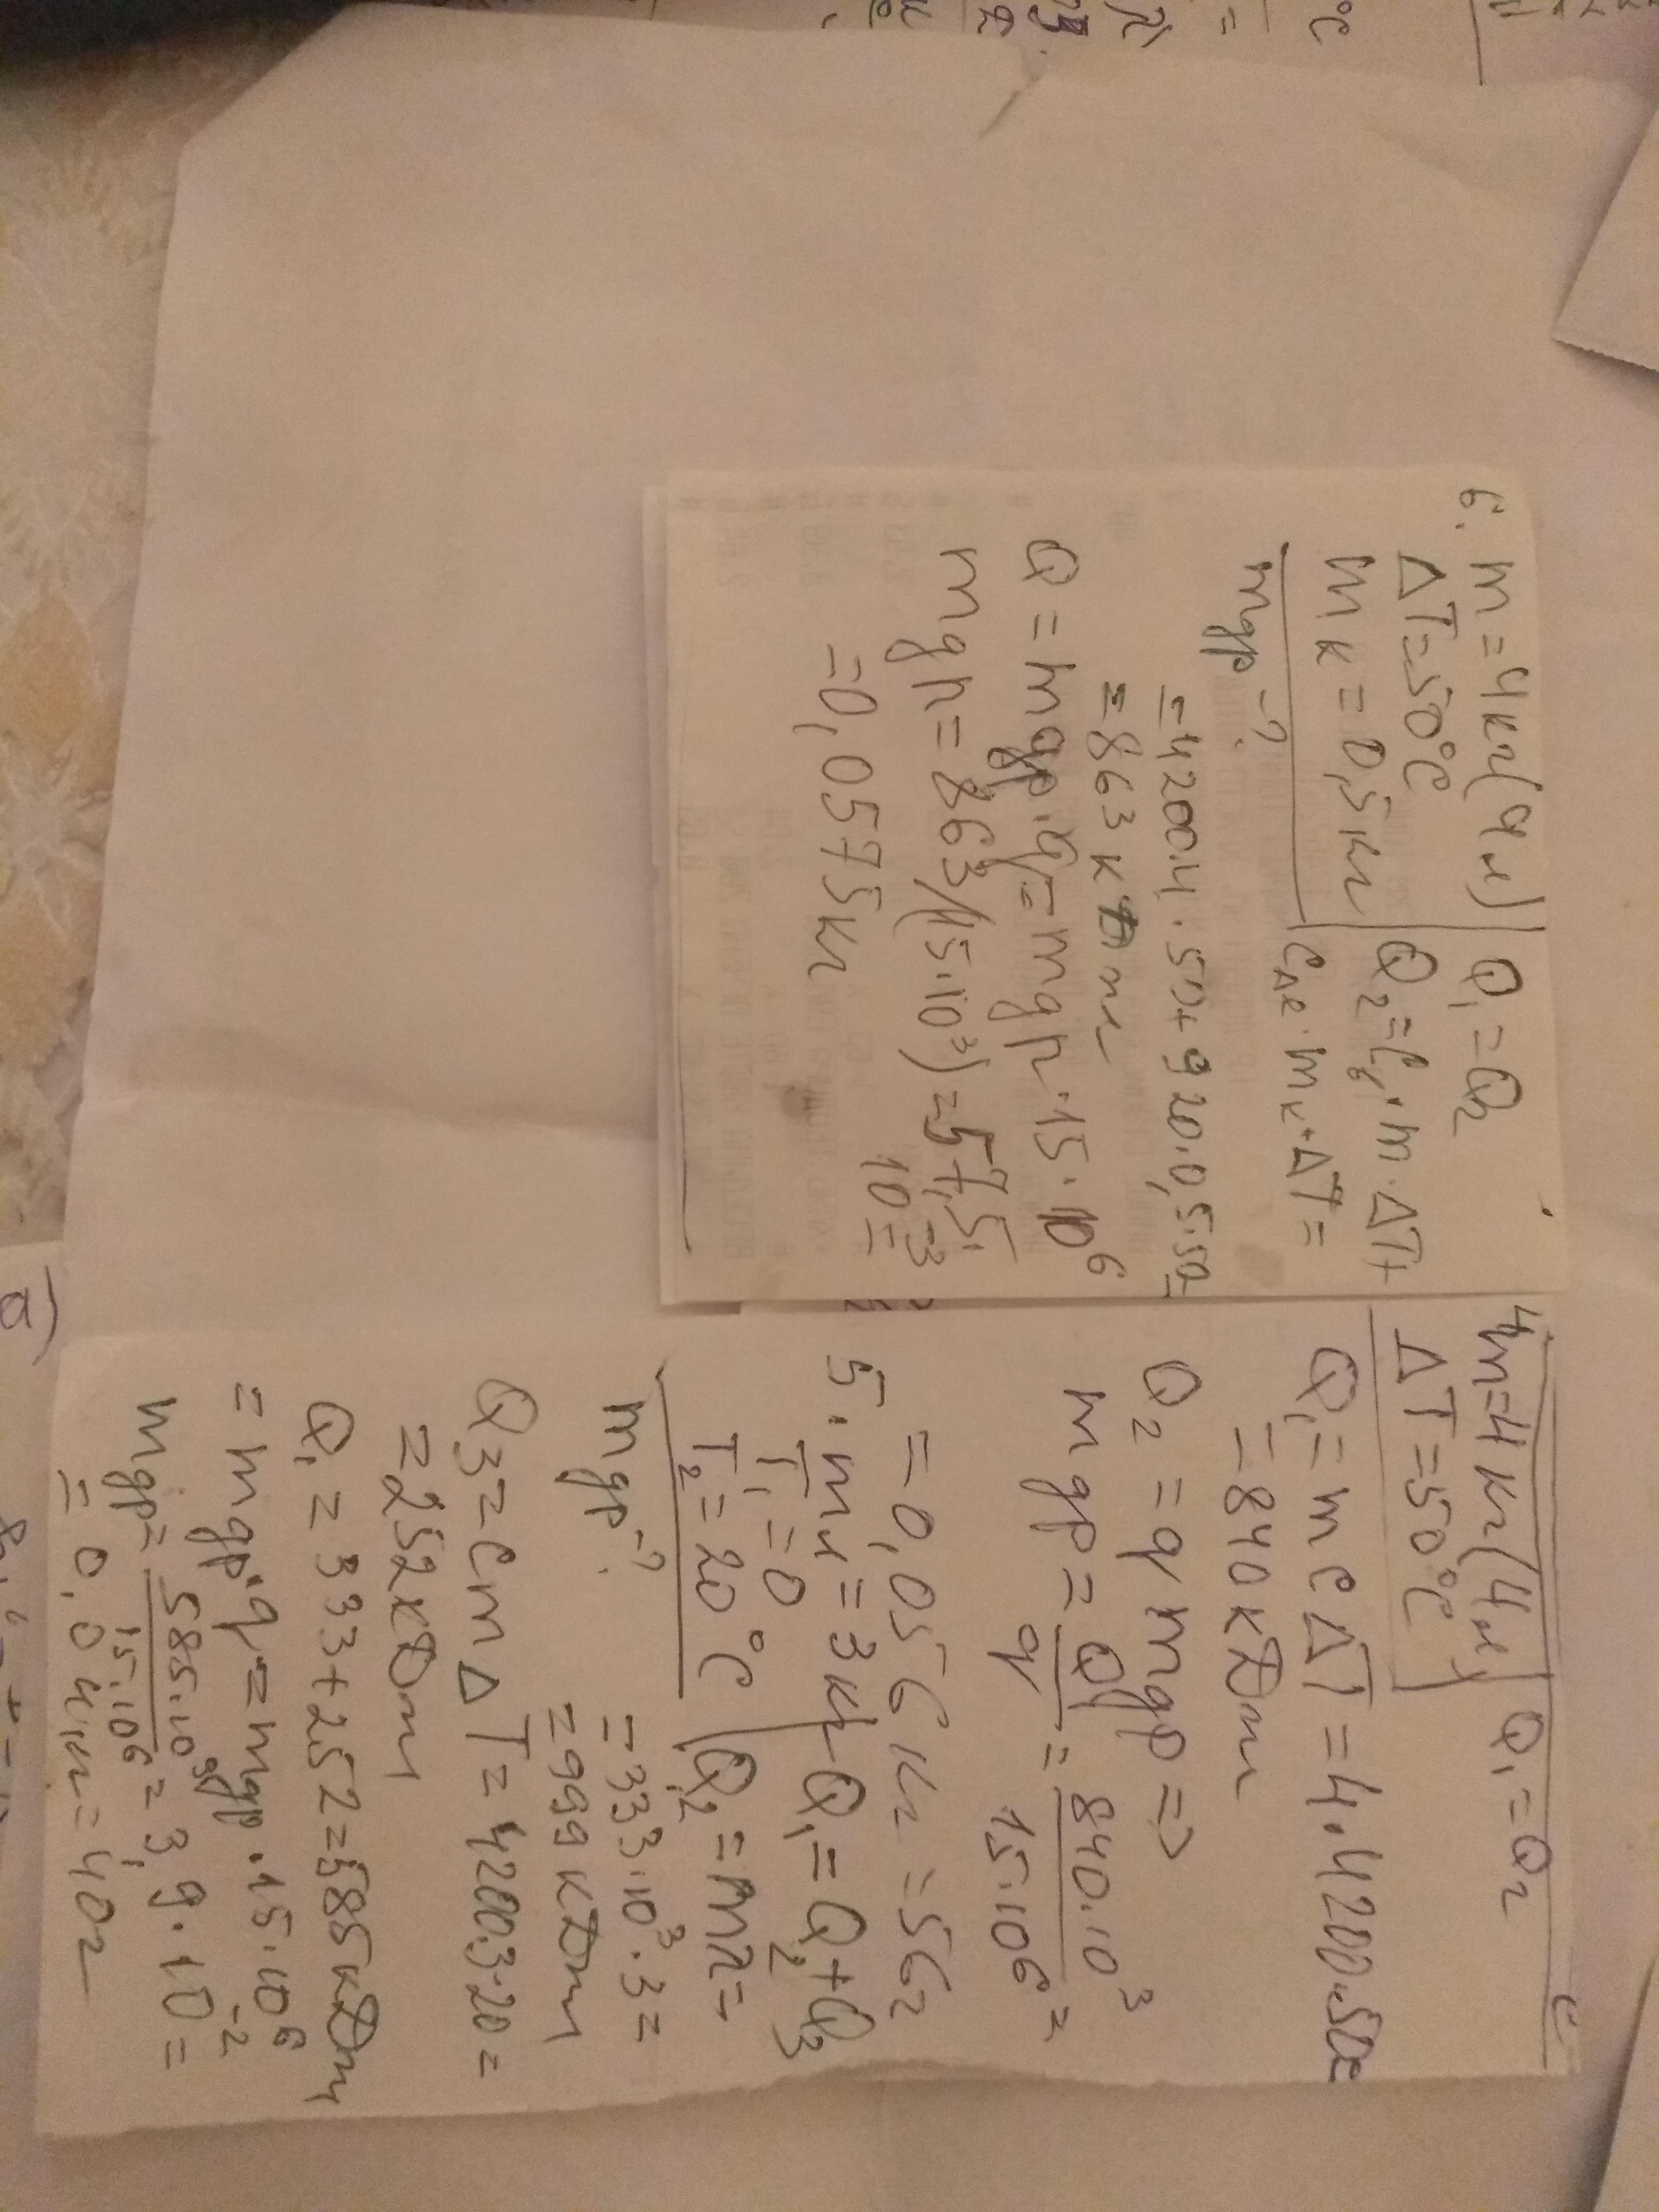 6. m = 4кг (4л) | Q₁ = Q₂
ΔT = 50°C
mк = 0,5кг | Q₂ = Cв·m·ΔT +
mдр -?
·mк·ΔT =
= 4200·4·50 + 920·0,5·50 =
= 863 кДж
Q = mдр·q = mдр·15·10⁶
mдр = 863/(15·10³) = 57,5·
10⁻³
= 0,0575кг
4 m = 4 кг (4л) | Q₁ = Q₂
ΔT = 50°C
Q₁ = mcΔT = 4·4200·50 =
= 840 кДж
Q₂ = q mдр =>
mдр = Q₁/q = 840·10³/15·10⁶ =
= 0,056 кг = 56г
5. m = 3кг | Q₁ = Q₂ + Q₃
T₁ = 0
T₂ = 20°C | Q₂ = mλ =
mдр -?
= 333·10³·3 =
= 999 кДж
Q₃ = cmΔT = 4200·3·20 =
= 252кДж
Q₁ = 333 + 252 = 585кДж
= mдр·q = mдр·15·10⁶
mдр = 585·10³/15·10⁶ = 3,9·10⁻² =
= 0,04кг = 40г
а)